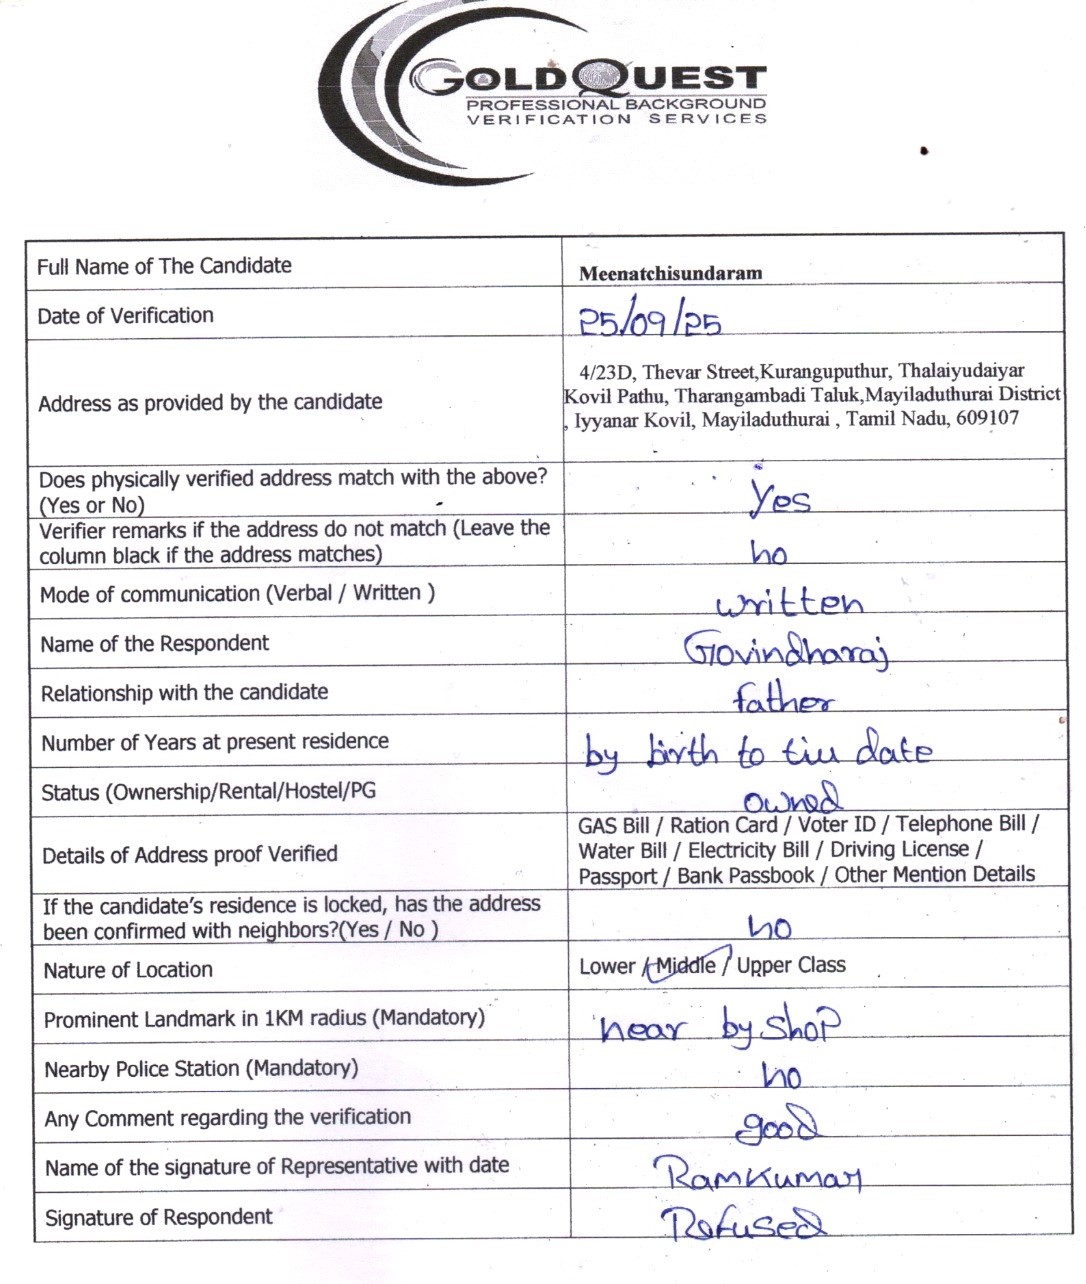 GOLDQUEST
PROFESSIONAL BACKGROUND
VERIFICATION SERVICES
Full Name of The Candidate
Meenatchisundaram
Date of Verification
25/09/25
Address as provided by the candidate
4/23D, Thevar Street,Kuranguputhur, Thalaiyudaiyar
Kovil Pathu, Tharangambadi Taluk,Mayiladuthurai District
, Iyyanar Kovil, Mayiladuthurai , Tamil Nadu, 609107
Does physically verified address match with the above?
(Yes or No)
Yes
Verifier remarks if the address do not match (Leave the
column black if the address matches)
no
Mode of communication (Verbal / Written )
written
Name of the Respondent
Govindharaj
Relationship with the candidate
father
Number of Years at present residence
by birth to till date
Status (Ownership/Rental/Hostel/PG
owned
Details of Address proof Verified
GAS Bill / Ration Card / Voter ID / Telephone Bill /
Water Bill / Electricity Bill / Driving License /
Passport / Bank Passbook / Other Mention Details
If the candidate's residence is locked, has the address
been confirmed with neighbors?(Yes / No )
no
Nature of Location
Lower / Middle / Upper Class
Prominent Landmark in 1KM radius (Mandatory)
near by shop
Nearby Police Station (Mandatory)
no
Any Comment regarding the verification
good
Name of the signature of Representative with date
Ramkumar
Signature of Respondent
Refused